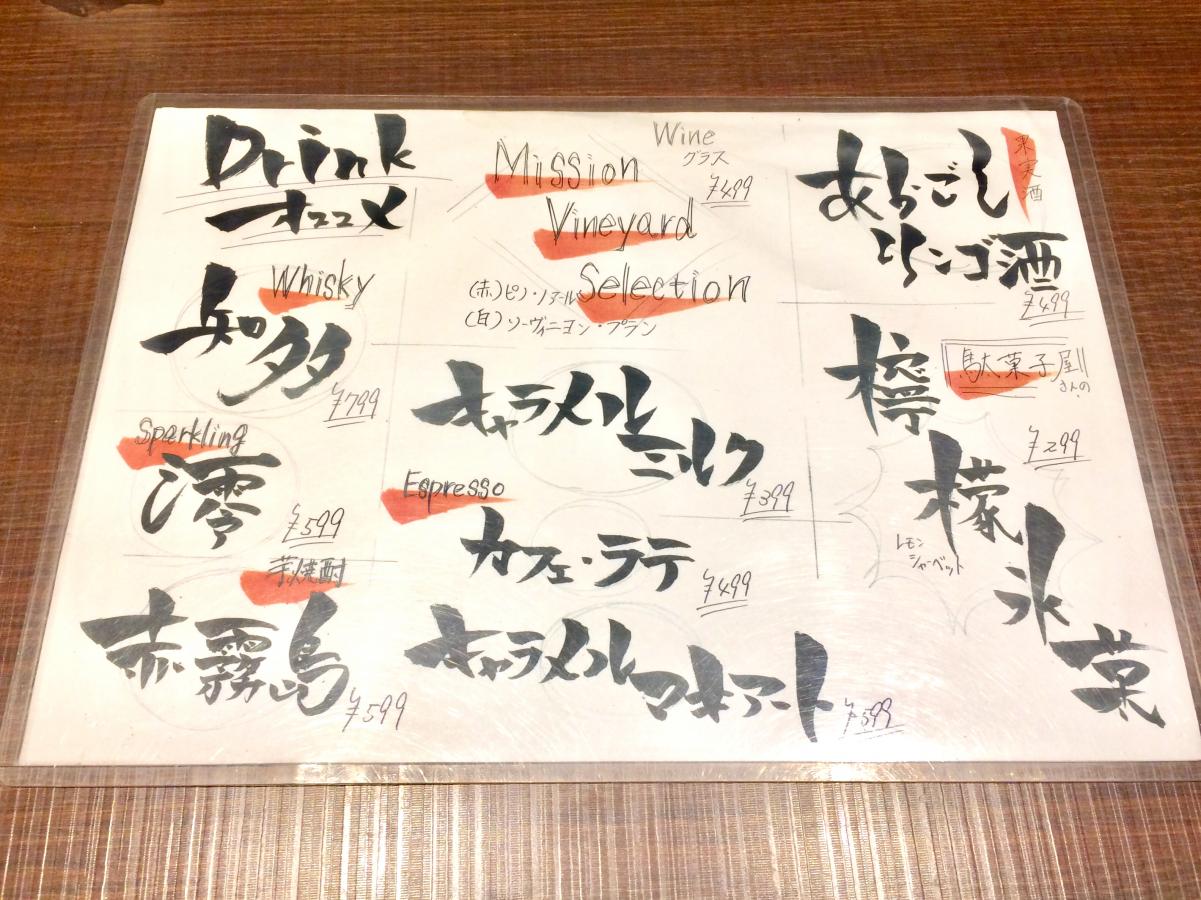 Drink
オススメ
Whisky
知多
¥799
Sparkling
澪
¥599
芋焼酎
赤霧島
¥599
Wine
グラス
¥499
Mission
Vineyard
Selection
(赤)ピノ・ノアール
(白)ソーヴィニヨン・ブラン
キャラメル
ミルク
¥399
Espresso
カフェ・ラテ
¥499
キャラメル
マキアート
¥599
果実酒
あらごし
りンゴ酒
¥499
駄菓子屋
さんの
¥299
檸檬氷菓
レモン
シャーベット